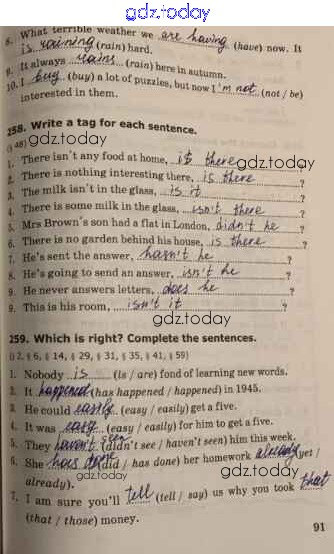 gdz.today
8. What terrible weather we are having (have) now. It
is raining (rain) hard.
9. It always rains (rain) here in autumn.
10. I buy (buy) a lot of puzzles, but now I'm not (not / be)
interested in them.
258. Write a tag for each sentence.
gdz.today
(§ 48)
1. There isn't any food at home, is there gdz.today
2. There is nothing interesting there, is there ?
3. The milk isn't in the glass, is it ?
4. There is some milk in the glass, isn't there ?
5. Mrs Brown's son had a flat in London, didn't he ?
6. There is no garden behind his house, is there ?
7. He's sent the answer, hasn't he ?
8. He's going to send an answer, isn't he ?
9. He never answers letters, does he ?
9. This is his room, isn't it ?
gdz.today
259. Which is right? Complete the sentences.
(§ 2, § 6, § 14, § 29, § 31, § 35, § 41, § 59)
1. Nobody is (is / are) fond of learning new words.
2. It happened (has happened / happened) in 1945.
3. He could easily (easy / easily) get a five.
4. It was easy (easy / easily) for him to get a five.
5. They haven't seen (didn't see / haven't seen) him this week.
6. She has done (did / has done) her homework already (yet /
gdz.today
already).
gdz.today
7. I am sure you'll tell (tell / say) us why you took that
(that / those) money.
91
gdz.today